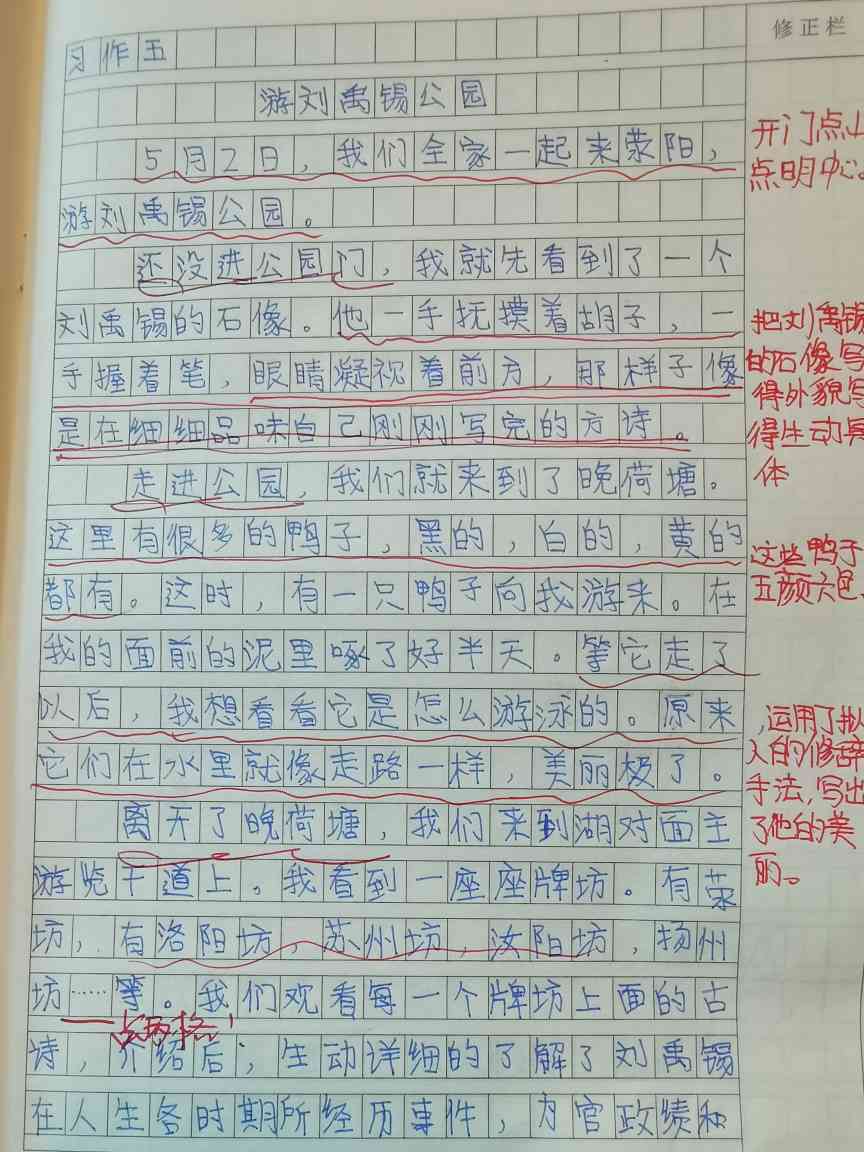 修正栏
习作五
游刘禹锡公园
5月2日，我们全家一起来荥阳，
游刘禹锡公园。
还没进公园门，我就先看到了一个
刘禹锡的石像。他一手抚摸着胡子，一
手握着笔，眼睛凝视着前方，那样子像
是在细细品味自己刚刚写完的方诗。
走进公园，我们就来到了晚荷塘。
这里有很多的鸭子，黑的，白的，黄的
都有。这时，有一只鸭子向我游来。在
我的面前的泥里啄了好半天。等它走了
以后，我想看看它是怎么游泳的。原来
它们在水里就像走路一样，美丽极了。
离开了晚荷塘，我们来到湖对面主
游览干道上。我看到一座座牌坊。有荥
坊，有洛阳坊，苏州坊，汝阳坊，扬州
坊……等。我们观看每一个牌坊上面的古
诗，介绍后，生动详细的了解了刘禹锡
在人生各时期所经历事件，为官政绩和
开门点山
点明中心。
把刘禹锡
的石像写
得外貌写
得生动具
体
这些鸭子
五颜六色、
，运用了拟
人的修辞
手法，写出
了他的美
丽。
占两格